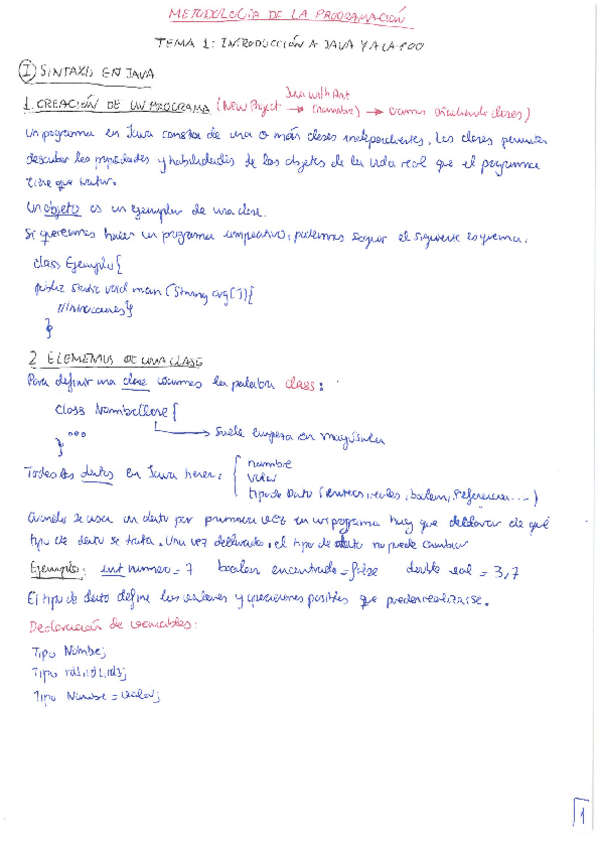 METODOLOGÍA DE LA PROGRAMACIÓN
TEMA 1: INTRODUCCIÓN A JAVA Y A LA POO
I SINTAXIS EN JAVA
Java with Ant
1. CREACIÓN DE UN PROGRAMA (New Project → (nombre) → vamos añadiendo clases)
Un programa en Java consta de una o más clases independientes. Las clases permiten
describir las propiedades y habilidades de los objetos de la vida real que el programa
tiene que tratar.
Un objeto es un ejemplar de una clase.
Si queremos hacer un programa imperativo, podemos seguir el siguiente esquema.
class Ejemplo{
public static void main (String arg[]){
//instrucciones}
}
2 ELEMENTOS DE UNA CLASE
Para definir una clase usamos la palabra class:
class NombreClase {
... → Suele empezar en mayúscula
}
Todos los datos en Java tienen: { nombre
valor
tipo de dato (enteros, reales, boolean, referencia...)
Cuando se usa un dato por primera vez en un programa hay que declarar de qué
tipo de dato se trata. Una vez declarado, el tipo de dato no puede cambiar
Ejemplo: int numero = 7 boolean encontrado = false double real = 3,7
El tipo de dato define los valores y operaciones posibles que pueden realizarse.
Declaración de variables:
Tipo Nombre;
Tipo id1, id2, id3;
Tipo Nombre = valor;
1